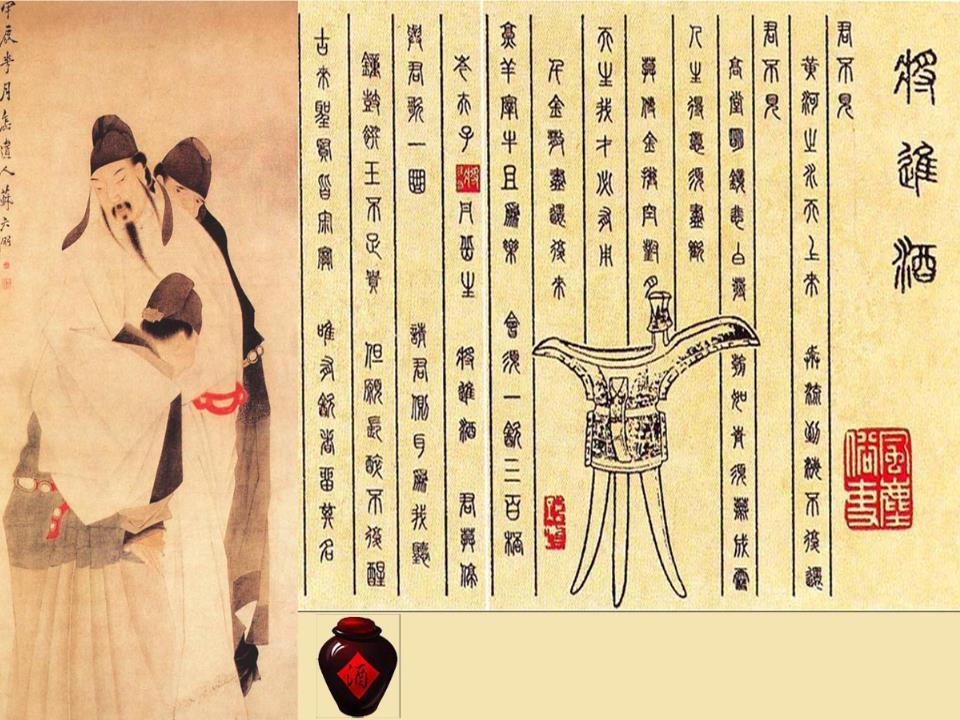 將進酒
君不見
黃河之水天上來 奔流到海不復還
君不見
高堂明鏡悲白髮 朝如青絲暮成雪
人生得意須盡歡
莫使金樽空對月
天生我才必有用
千金散盡還復來
烹羊宰牛且為樂 會須一飲三百杯
岑夫子 丹丘生 將進酒 君莫停
與君歌一曲 請君側耳為我聽
鐘鼓饌玉不足貴 但願長醉不復醒
古來聖賢皆寂寞 唯有飲者留其名
風塵俗吏
甲辰春月怎道人蘇六朋
酒